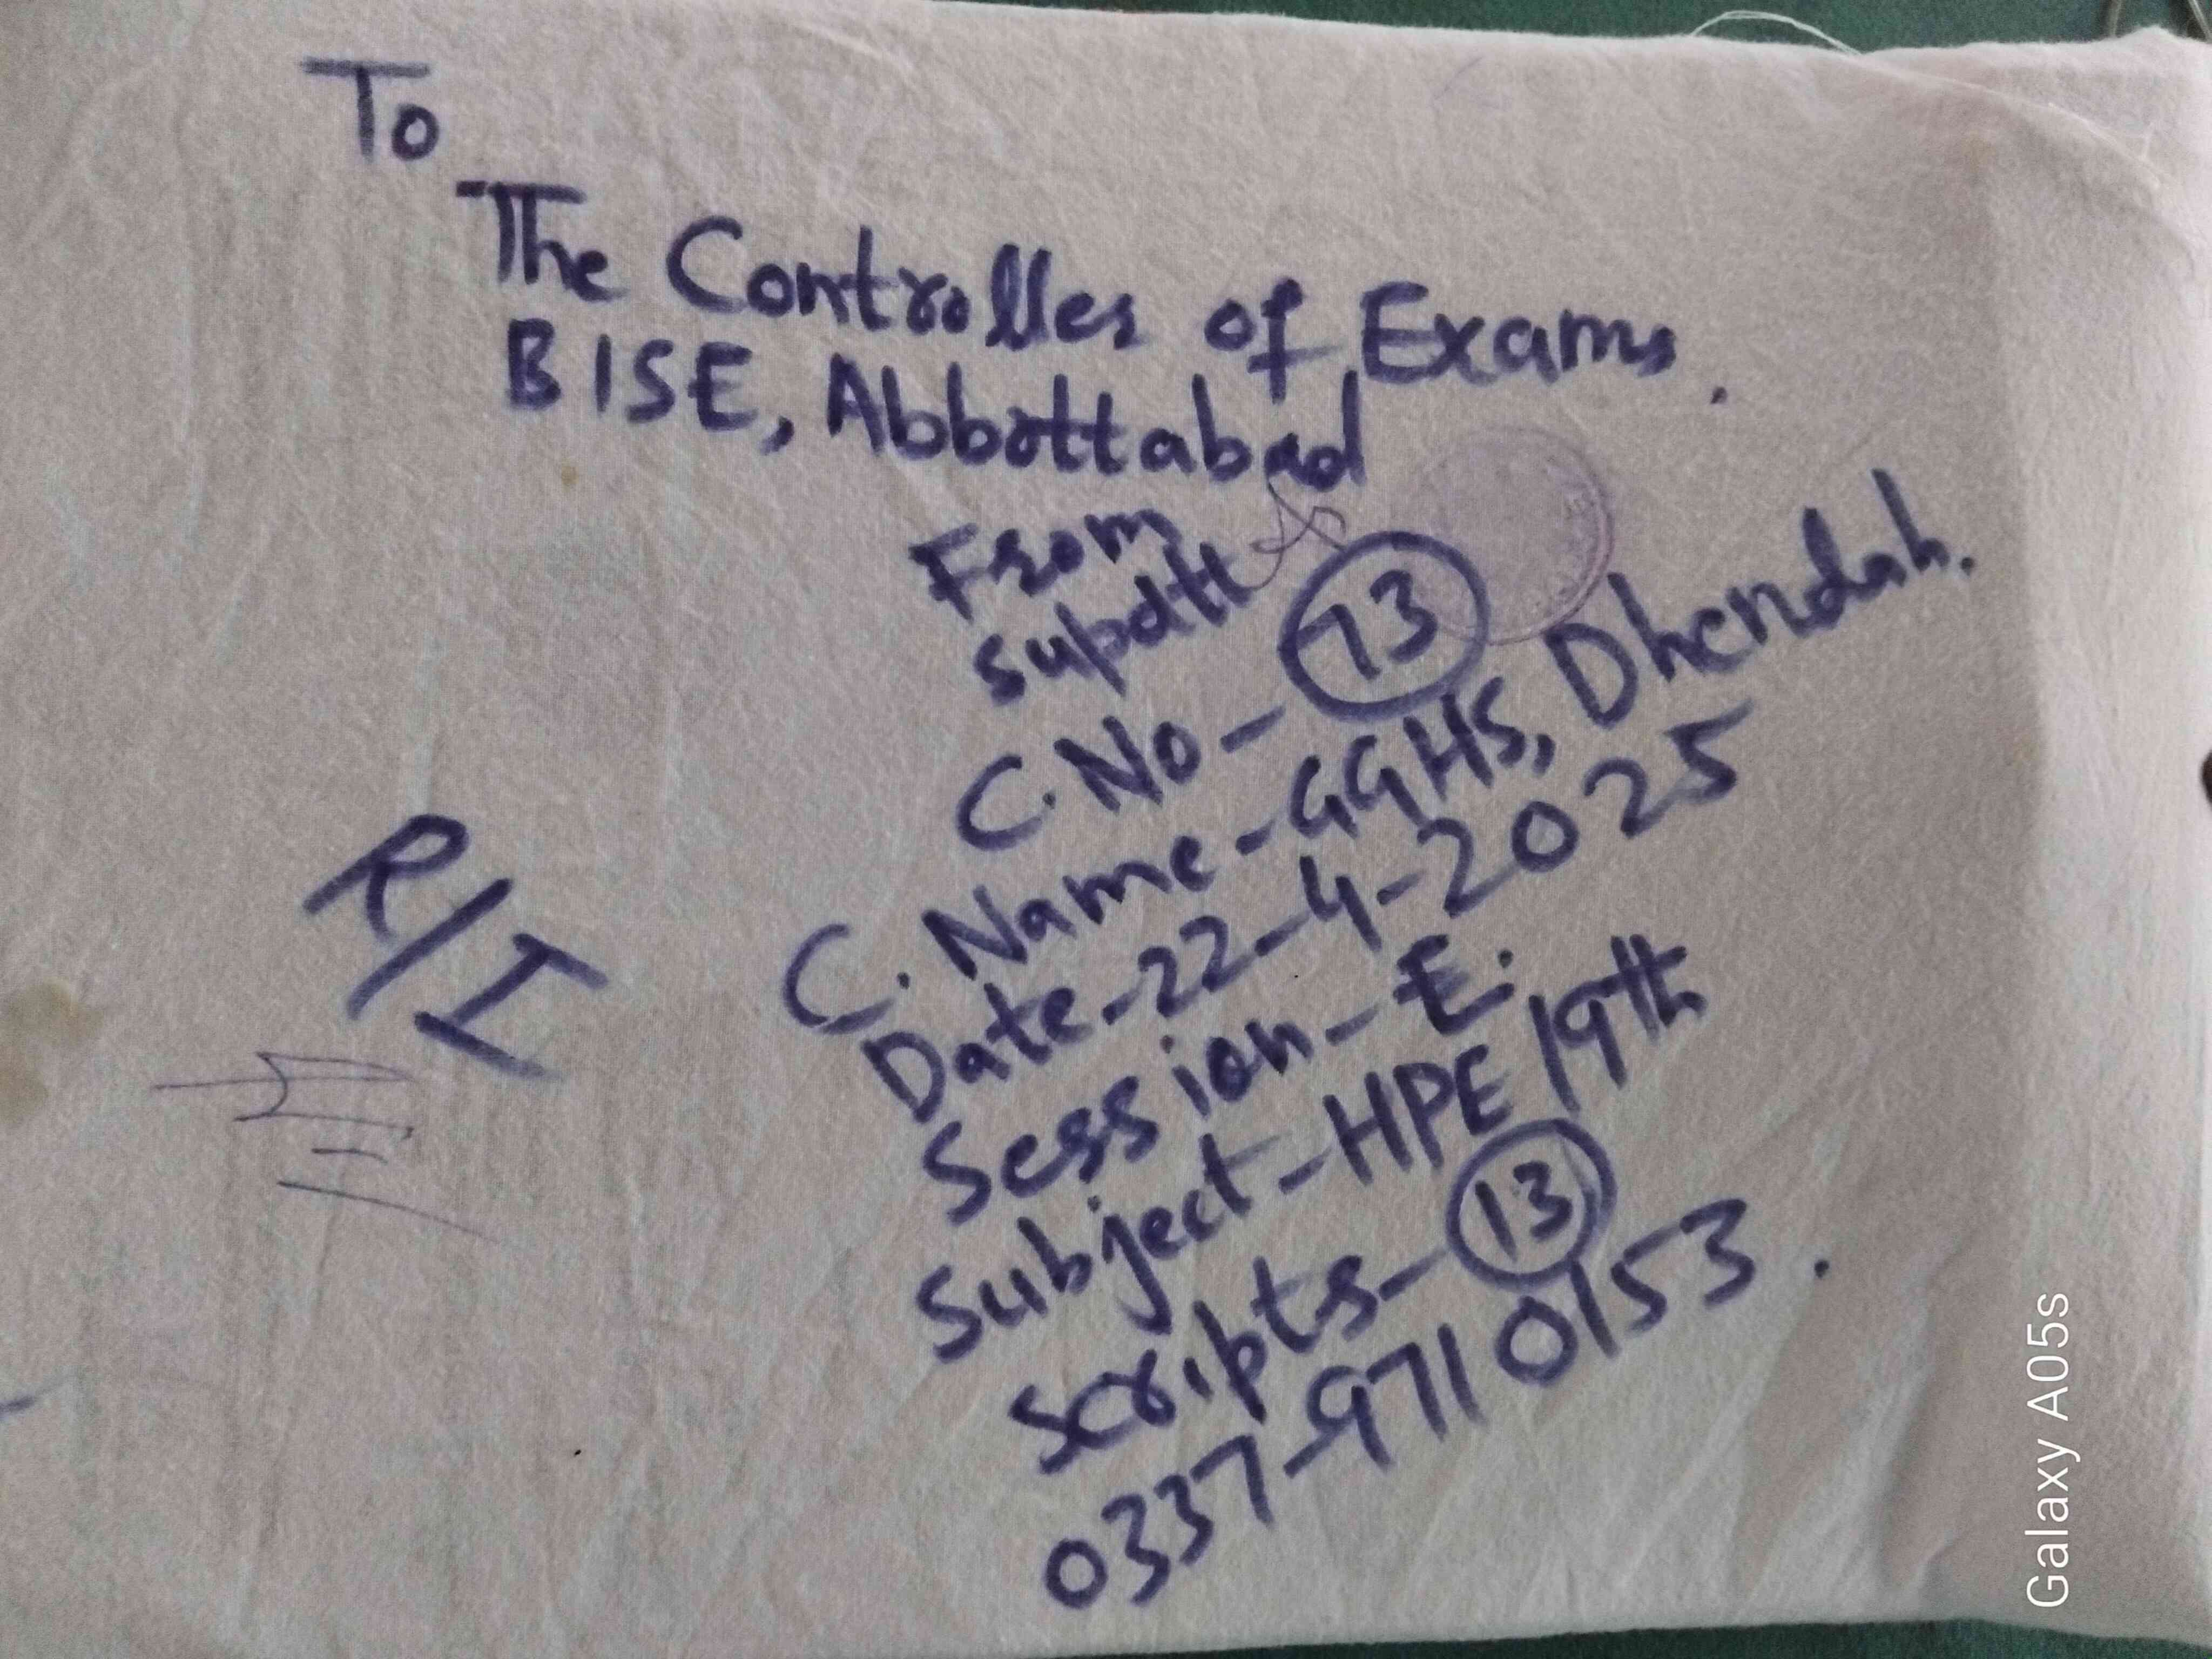 To
The Controller of Exams.
BISE, Abbottabad
From
Supdtt
C. No - 73
C. Name - GGHS, Dhendah.
Date - 22-4-2025
Session - E.
Subject - HPE / 9th
Scripts - 13
0337-9710153.
R/I
Galaxy A05s